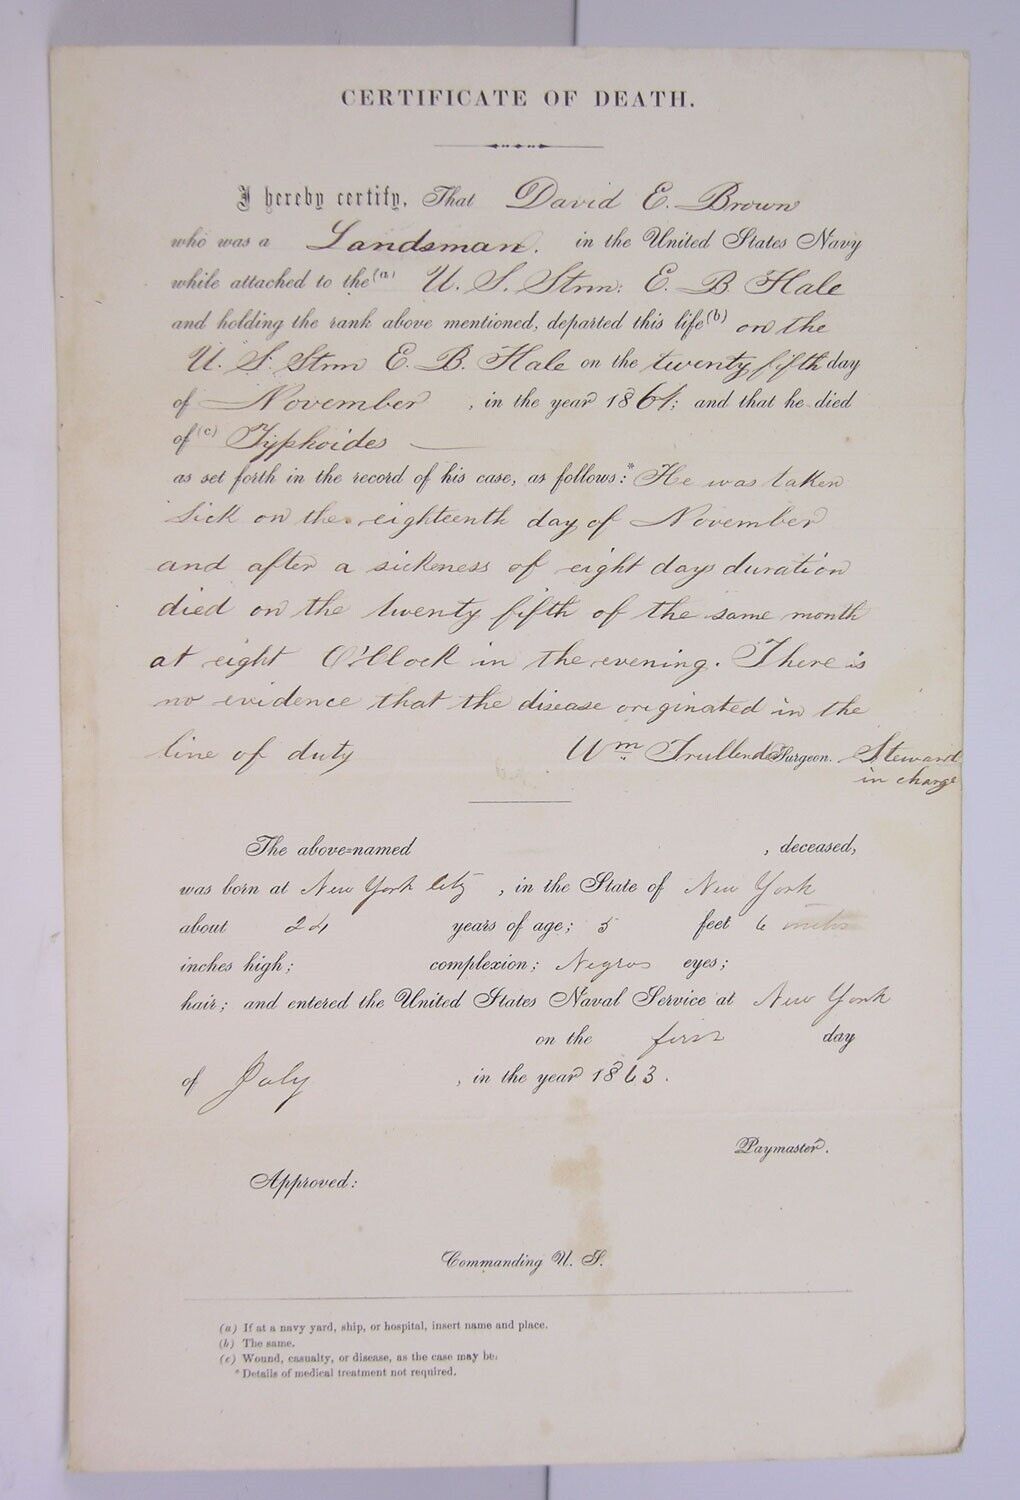 CERTIFICATE OF DEATH.
I hereby certify, That David E. Brown
who was a Landsman. in the United States Navy
while attached to the (a) U. S. Stmr. E. B. Hale
and holding the rank above mentioned, departed this life (b) on the
U. S. Stmr E. B. Hale on the twenty fifth day
of November , in the year 1864; and that he died
of (c) Typhoides
as set forth in the record of his case, as follows:* He was taken
Sick on the eighteenth day of November
and after a sickeness of eight days duration
died on the twenty fifth of the same month
at eight O'Clock in the evening. There is
no evidence that the disease originated in the
line of duty Wm Surgeon. Steward
in charge
The above-named , deceased,
was born at New York City , in the State of New York
about 24 years of age; 5 feet 6
inches high; complexion; Negro eyes;
hair; and entered the United States Naval Service at New York
on the first day
of July , in the year 1863.
Paymaster.
Approved:
Commanding U. S.
(a) If at a navy yard, ship, or hospital, insert name and place.
(b) The same.
(c) Wound, casualty, or disease, as the case may be.
* Details of medical treatment not required.